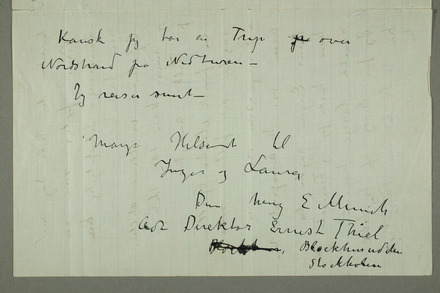 Kansk jeg tar en Trip over
Nordstrand paa Nedturen –
Jeg reiser snart –
Mange Hilsener til
Inger og Laura
Din heng E Munch
Adr Direktør Ernest Thiel
Blockhusudden
Stockholm